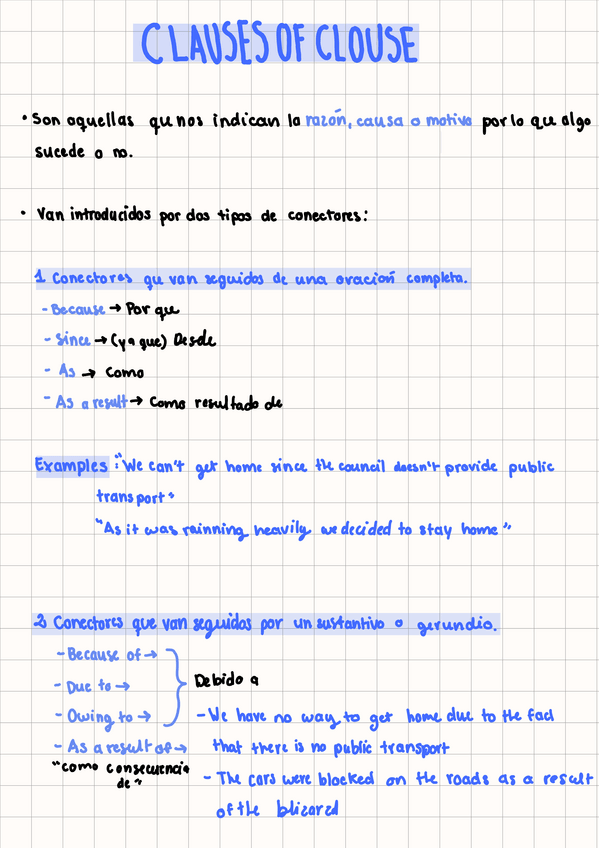 CLAUSES OF CLOUSE
• Son aquellas qu nos indican la razón, causa o motivo por lo que algo
sucede o no.
• Van introducidos por dos tipos de conectores:
1 Conectores qu van seguidos de una oración completa.
- Because → Por que
- Since → (ya que) Desde
- As → Como
- As a result → Como resultado de
Examples: "We can't get home since the council doesn't provide public
transport"
"As it was rainning heavily we decided to stay home"
2 Conectores que van seguidos por un sustantivo o gerundio.
- Because of →
- Due to →
Debido a
- Owing to →
- We have no way to get home due to the fact
- As a result of →
that there is no public transport
"como consecuencia
de"
- The cars were blocked on the roads as a result
of the blizared